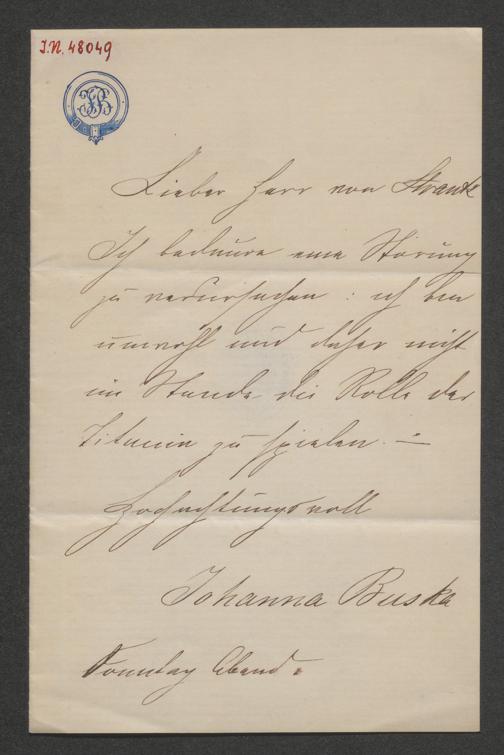 I.N. 48049
JB
Lieber Herr von Strantz
Ich bedaure eine Störung
zu verursachen : ich bin
unwohl und daher nicht
im Stande die Rolle der
Titania zu spielen. –
Hochachtungsvoll
Johanna Buska
Sonntag Abend.